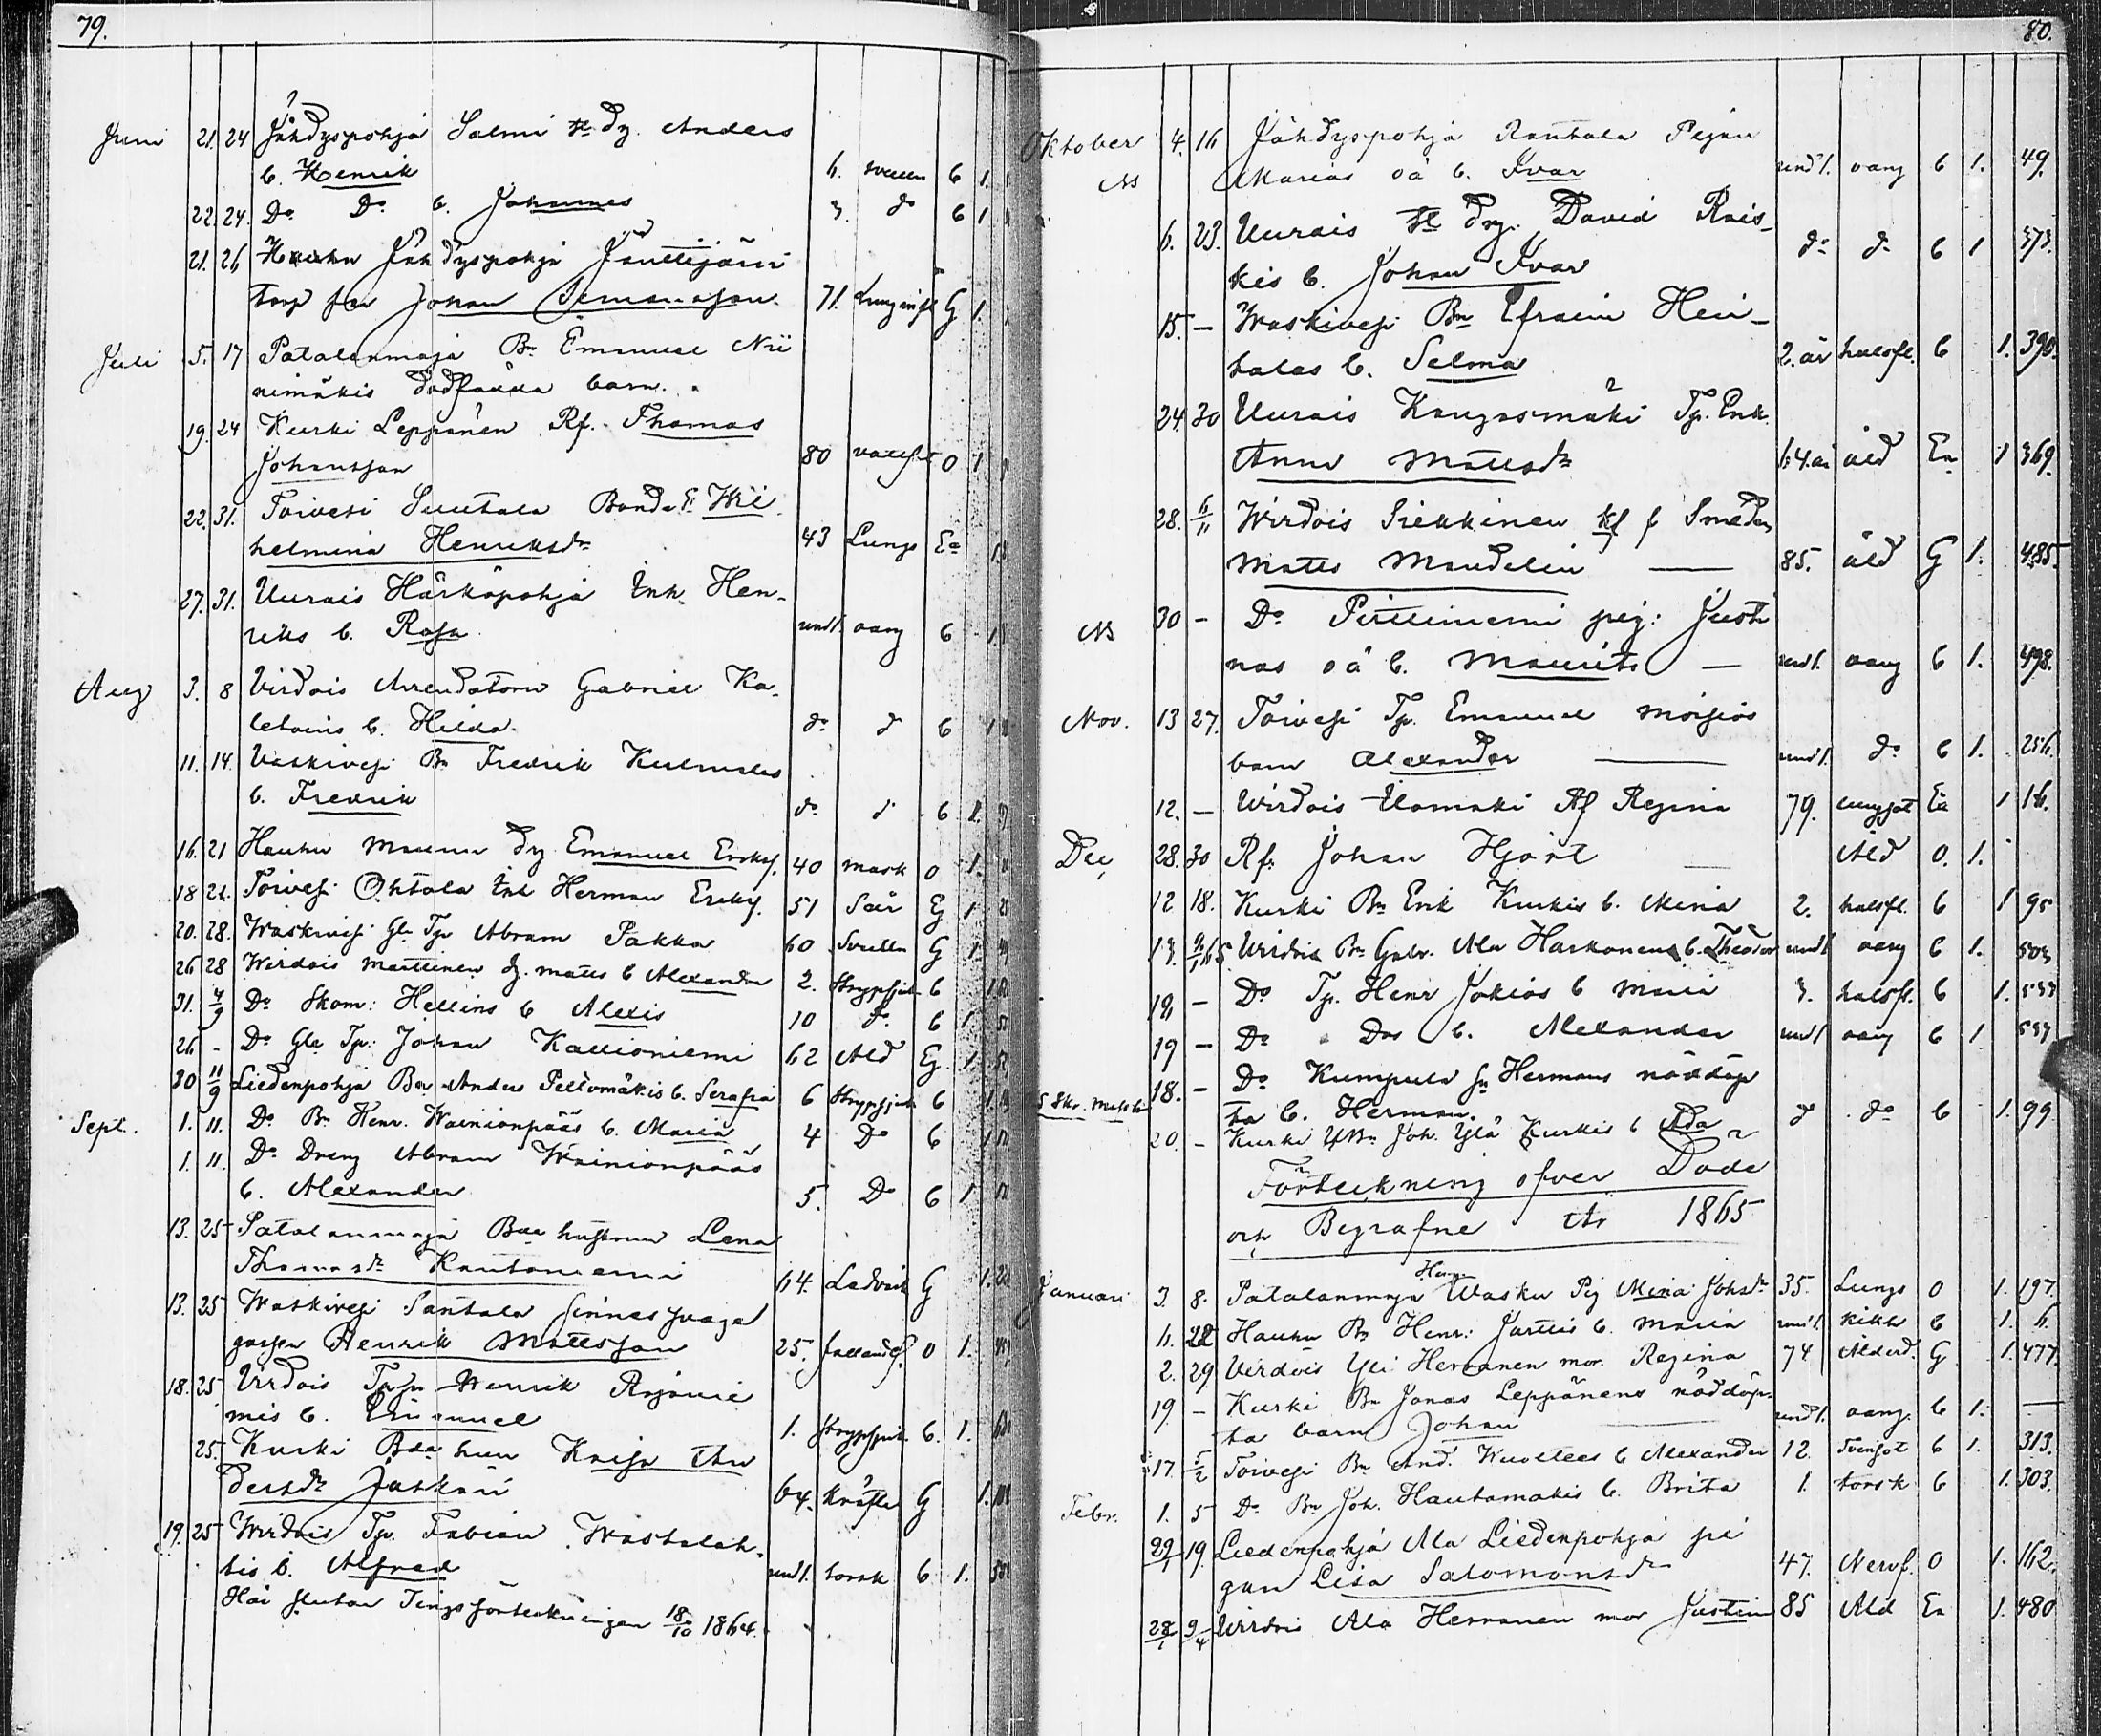 79.
Juni 21. 24 Jähdyspohja Salmi Dg. Anders
b. Henrik 6. svullen b 1.
22. 24. Do Do b. Johannes 3. do b 1
21. 26 Jähdyspohja Jäuttijärvi
torp far Johan Simonsson. 71. Lunginfl G 1.
Juli 5. 17 Patalanmaja Bn Emanuel Nii
nimäkis dödfödda barn.
19. 24 Kurki Leppänen Rf. Thomas
Johansson 80 vattust O 1
22. 31. Toivesi Suutala Bonde E. Wil
helmina Henriksdr 43 Lungs Ea
27. 31. Uurais Härköpohja Inh. Hen-
riks b. Rosa und 1. oang b 1
Aug 3. 8 Virdois Arrendatorn Gabriel Ka-
letoins b. Hilda. do d b 1
11. 14. Vaskivesi Bn Fredrik Kulmalas
b. Fredrik do d b 1.
16. 21 Hauhu Maunu Dg Emanuel Ersky. 40 mask O 1.
18 21. Toivesi Ohtola Inh Herman Ersky. 51 Sår Eg 1
20. 28. Waskivesi Gle Tp Abram Pakka 60 Svullen G 1.
26 28 Wirdois Marttinen dg. Matts b Alexander 2. Strypsjuk b
31. 4/9 Do Skom: Hellins b Alexis 10 do b 1
26 - Do Gle Tp: Johan Kallioniemi 62 Åld Eg. 1
30 11/9 Liedenpohja Bn Anders Peltomäkis b. Serafia 6 Strypsjuk b 1.
Sept. 1. 11. Do Bn Henr. Wainionpääs b. Maria 4 Do b 1
1. 11. Do Dreng Abram Wainionpääs
b. Alexander 5. Do b 1
13. 25 Patalanmaja Bde hustrun Lena
Thomasdr Rautaniemi 64. Ledvärk G 1.
13. 25 Waskivesi Santala sinnessvaga
gossen Henrik Mattsson 25. fallands. O 1.
18. 25 Virdois Tpn Henrik Arjanie
mis b. Emanuel 1. Strypsjuk. b. 1.
25. Kurki Bde hun Kaisa An
dersdr Jäskäri 64. Kräfta G 1.
19. 25 Wirdois Tp. Fabian Wastalah-
tis b. Alfred und 1. torsk b 1.
Här slutar Tingsförteckningen 18/10 1864.
80.
Oktober 4. 16 Jähdyspohja Rantala Pigan
NB Marias oä b. Ivar und 1. oang b 1. 49.
6. 23. Uurais Dg. David Rais-
kis b. Johan Ivar do do b 1 373.
15. — Waskivesi Bn Efraim Hei-
talas b. Selma 2. år halsfl. b 1. 390.
24. 30 Uurais Kangasmäki Tp. Enk.
Anna Mattsdr 64. år åld En 1 369.
28. 6/11 Wirdois Siekkinen kf f Smeden
Matts Mandelin — 85. åld G 1. 485.
NB 30 - Do Pirttiniemi pig: Justi
nas oä b. Maurits — und 1. oang b 1. 498.
Nov. 13 27. Toivesi Tp. Emanuel Moisios
barn Alexander — und 1. do b 1. 256.
12. — Wirdois Ilomäki Af Regina 79. lungsot En 1 16.
Dec, 28. 30 Rf. Johan Hjort — Åld O. 1.
12 18. Kurki Bn Erik Kurkis b. Mina 2. halsfl. b 1 95
13. Wirdois Bn Gabr. Ala Härkönens b. Theodor und 1 oang b 1. 503
19, — Do Tp. Henr Jokios b Maria 3. halsfl. b 1. 537
19 — Do Dos b. Alexander und 1 oang b 1 537
18. - Do Kumpula Herman nöddöp
ta b. Herman.
20. - Kurki Bn Joh. Ylä Kurkis b Ada d do b 1. 99.
Förteckning öfver Döde
och Begrafne År 1865
Januari 3. 8. Patalanmaja Wasku Pig Mina Johsdr 35. Lungs O 1. 197.
11. 22 Hauhu Bn Henr: Jurttis b. Maria und 1. kikh b 1. 6.
2. 29. Virdois Yli Herranen mor. Regina 74 Ålderd. G 1. 477.
19 — Kurki Bn Jonas Leppänens nöddöp-
ta barn Johan und 1. oang. b 1. —
17. 5/2 Toivesi Bn And. Kuoltees b Alexander 12. Tvinsot b 1. 313.
Febr. 1. 5 Do Bn Joh. Hautamäkis b. Brita 1. torsk b 1. 303.
29/1 19. Liedenpohja Ala Liedenpohja pi
gan Lisa Salomonsdr 47. Nervf. O 1. 162.
28/1 9/4 Wirdois Ala Herranen mor Justina 85 Åld En 1. 480